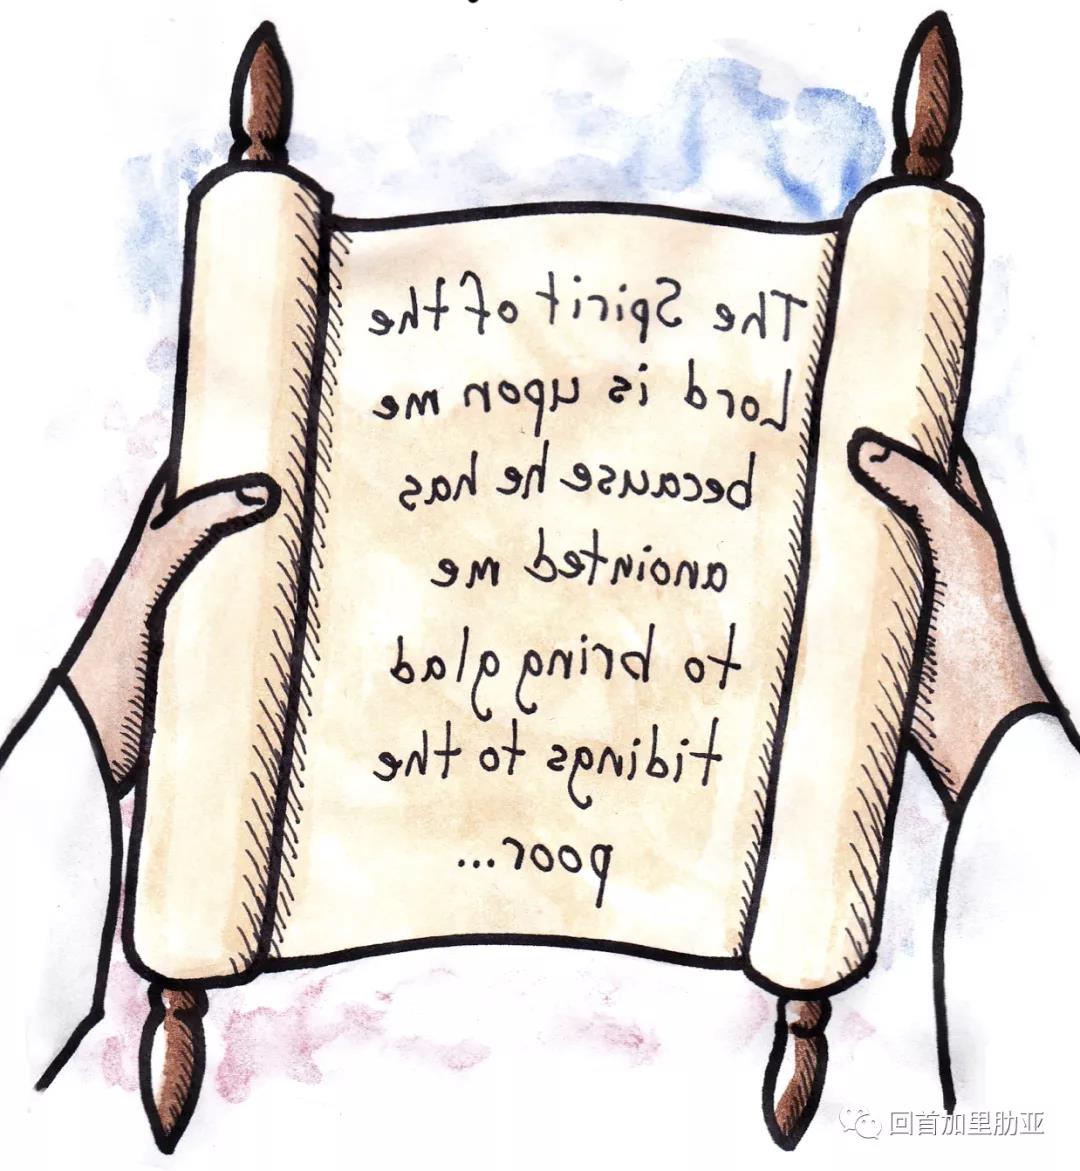 The Spirit of the
Lord is upon me
because he has
anointed me
to bring glad
tidings to the
poor...
回首加里肋亚